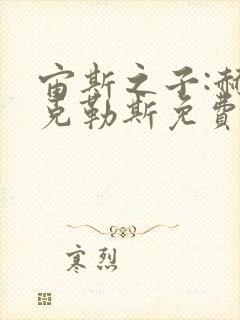 宙斯之子:赫
克勒斯免費
寒烈